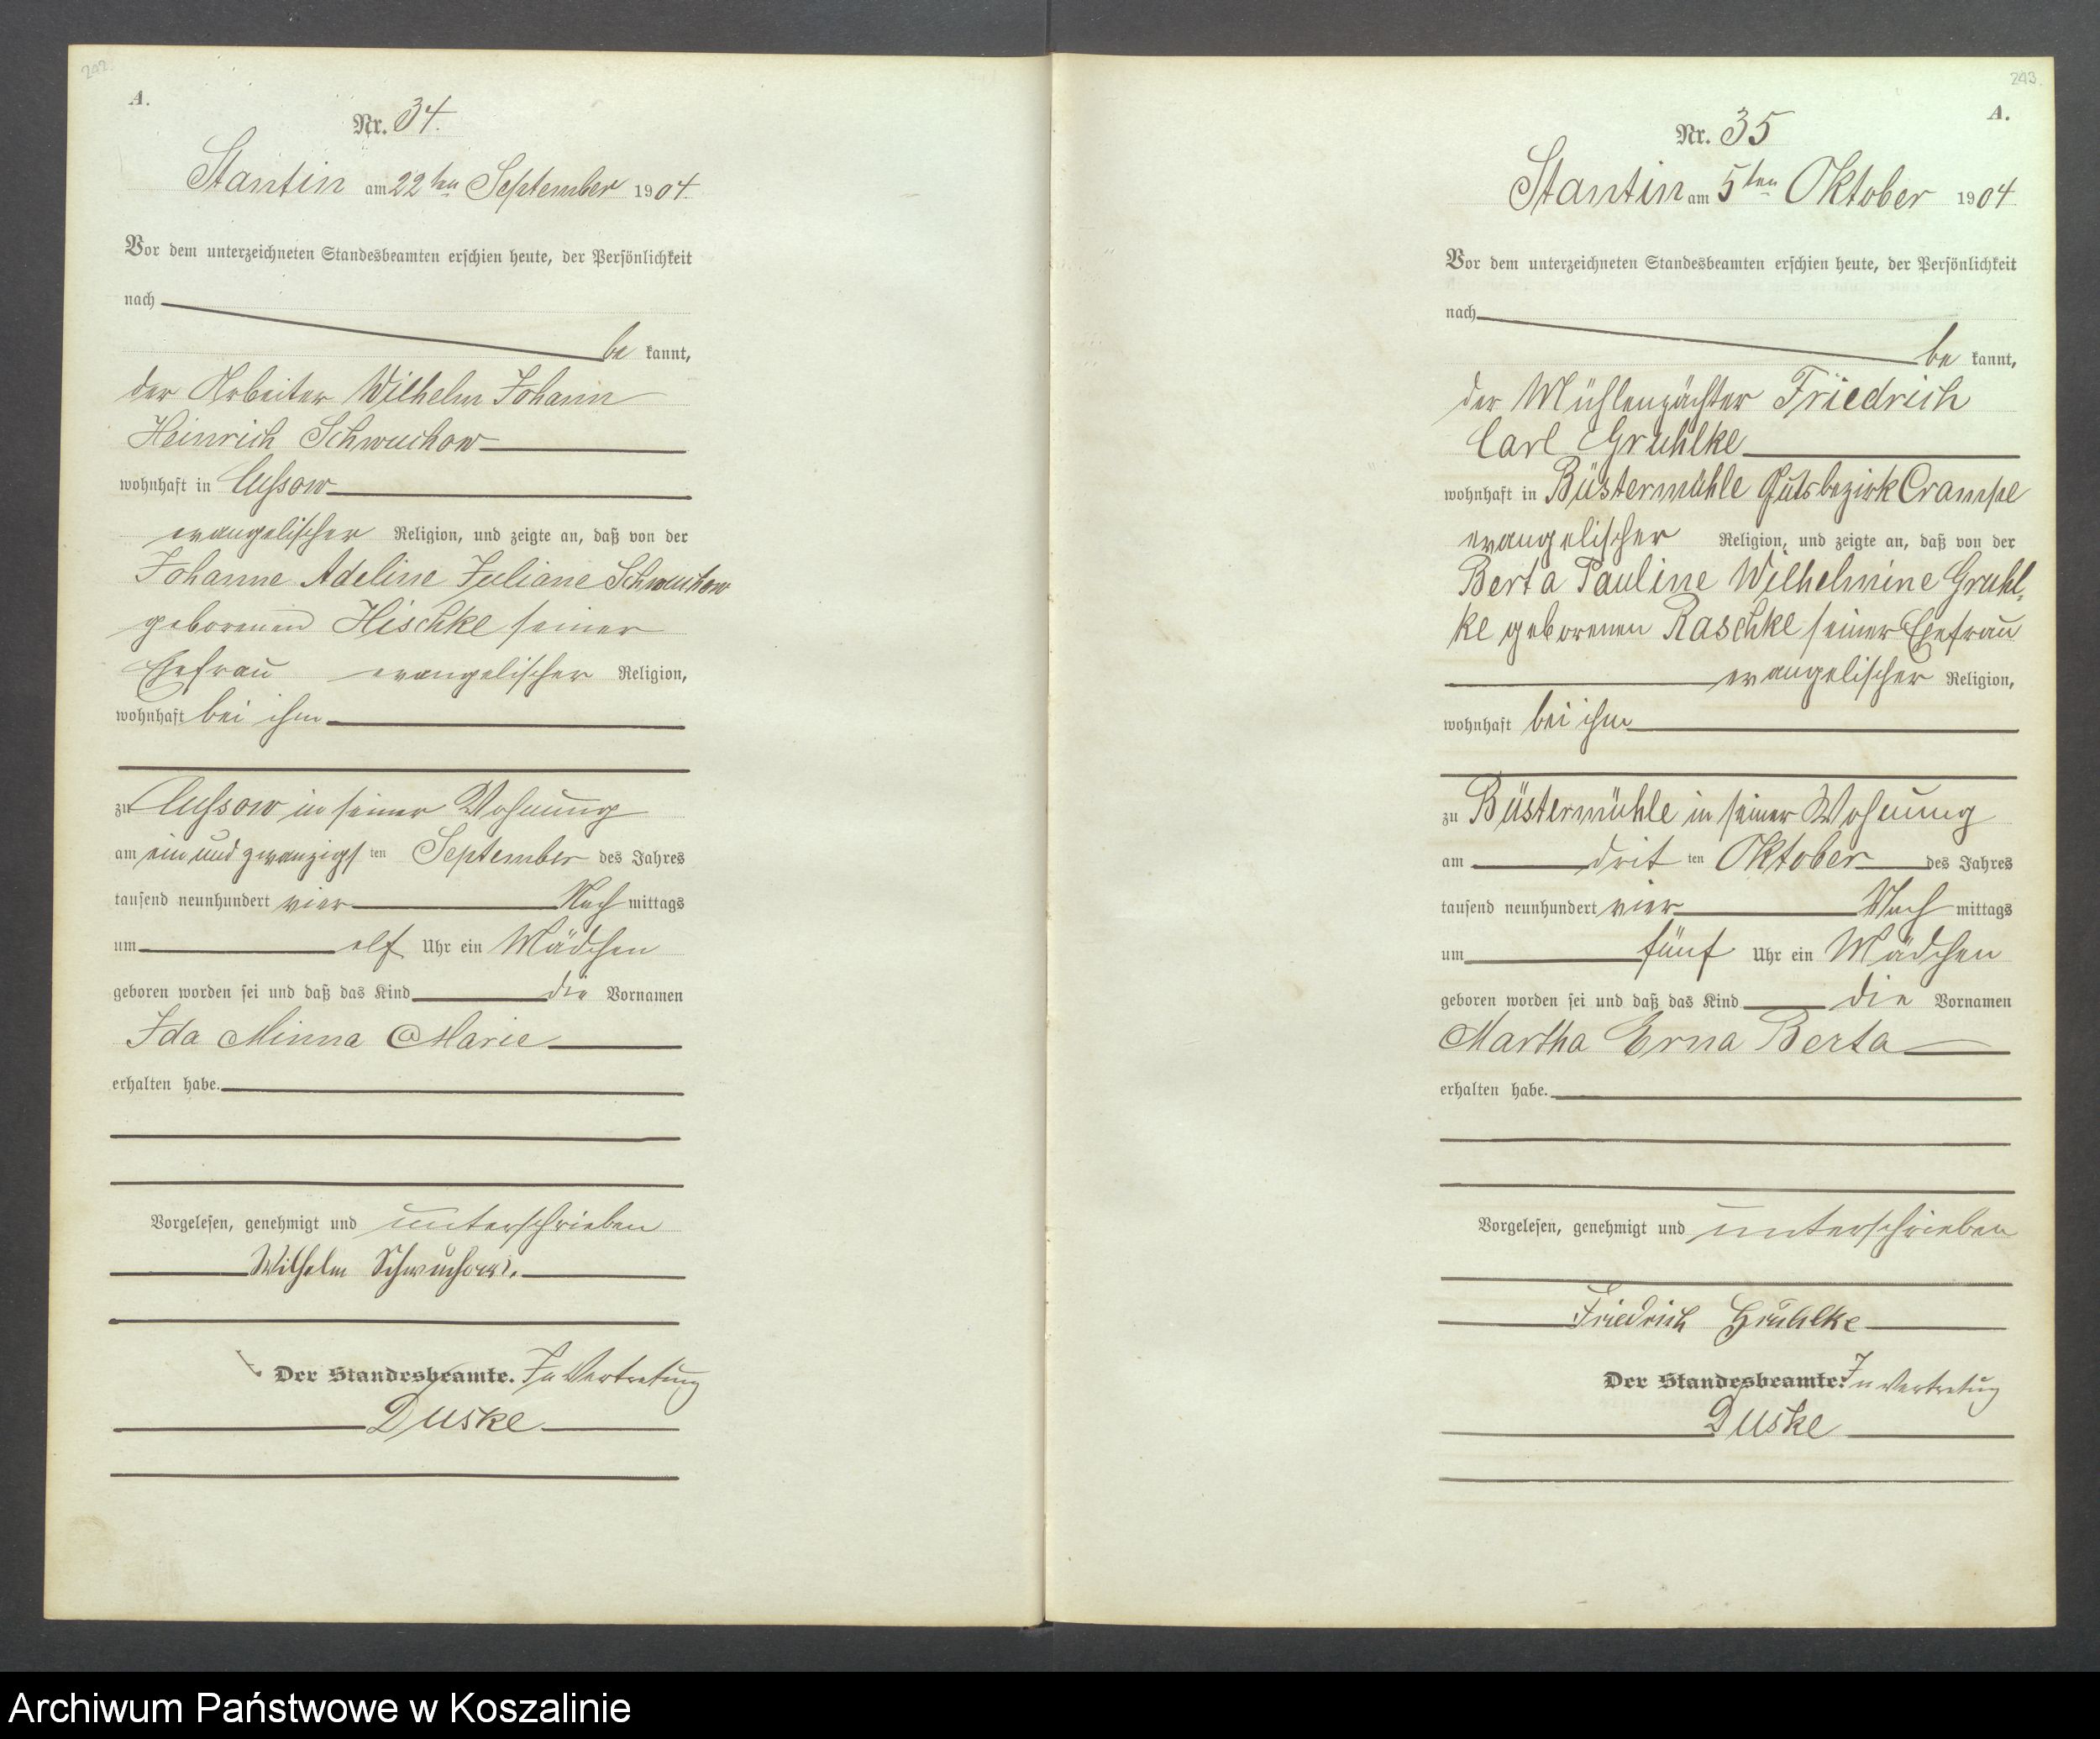 242.
A.
Nr. 34.
Stantin am 22ten September 1904.
Vor dem unterzeichneten Standesbeamten erschien heute, der Persönlichkeit
nach
be kannt,
der Arbeiter Wilhelm Johann
Heinrich Schwuchow
wohnhaft in Lussow
evangelischer Religion, und zeigte an, daß von der
Johanne Adeline Juliane Schwuchow
geborenen Hischke seiner
Ehefrau evangelischer Religion,
wohnhaft bei ihm
zu Lussow in seiner Wohnung
am ein und zwanzigs ten September des Jahres
tausend neunhundert vier Nach mittags
um elf Uhr ein Mädchen
geboren worden sei und daß das Kind die Vornamen
Ida Minna Marie
erhalten habe.
Vorgelesen, genehmigt und unterschrieben
Wilhelm Schwuchow.
Der Standesbeamte. In Vertretung
Duske
243.
A.
Nr. 35
Stantin am 5ten Oktober 1904
Vor dem unterzeichneten Standesbeamten erschien heute, der Persönlichkeit
nach
be kannt,
der Mühlenpächter Friedrich
Carl Gruhlke
wohnhaft in Büstermühle Gutsbezirk Crampe
evangelischer Religion, und zeigte an, daß von der
Berta Pauline Wilhelmine Gruhl-
ke geborenen Raschke seiner Ehefrau
evangelischer Religion,
wohnhaft bei ihm
zu Büstermühle in seiner Wohnung
am drit ten Oktober des Jahres
tausend neunhundert vier Nach mittags
um fünf Uhr ein Mädchen
geboren worden sei und daß das Kind die Vornamen
Martha Erna Berta
erhalten habe.
Vorgelesen, genehmigt und unterschrieben
Friedrich Gruhlke
Der Standesbeamte. In Vertretung
Duske
Archiwum Państwowe w Koszalinie